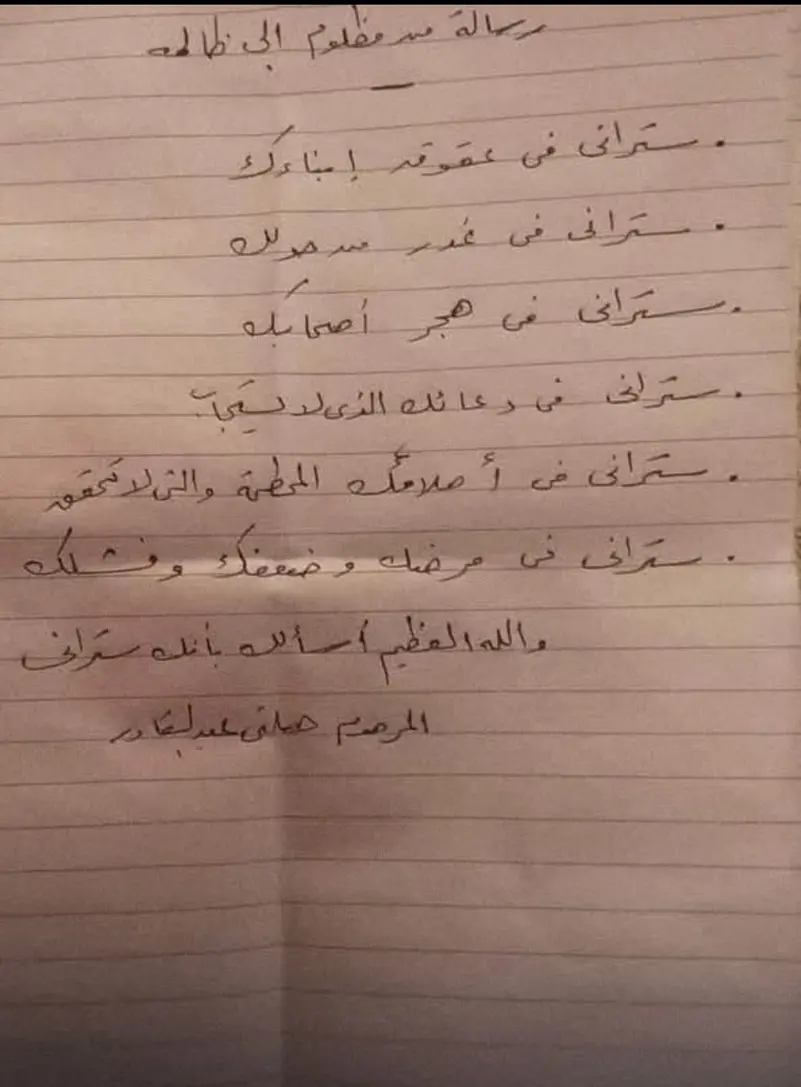 رسالة من مظلوم الى ظالمه
ستراني في عقوق إبناءك
ستراني في غدر من حولك
ستراني في هجر أصحابك
ستراني في دعائك الذي لا يستجاب
ستراني في أحلامك المحطمة والتي لا تتحقق
ستراني في مرضك وضعفك وفشلك
والله العظيم أسألك بأنك ستراني
المرحوم عبد القادر